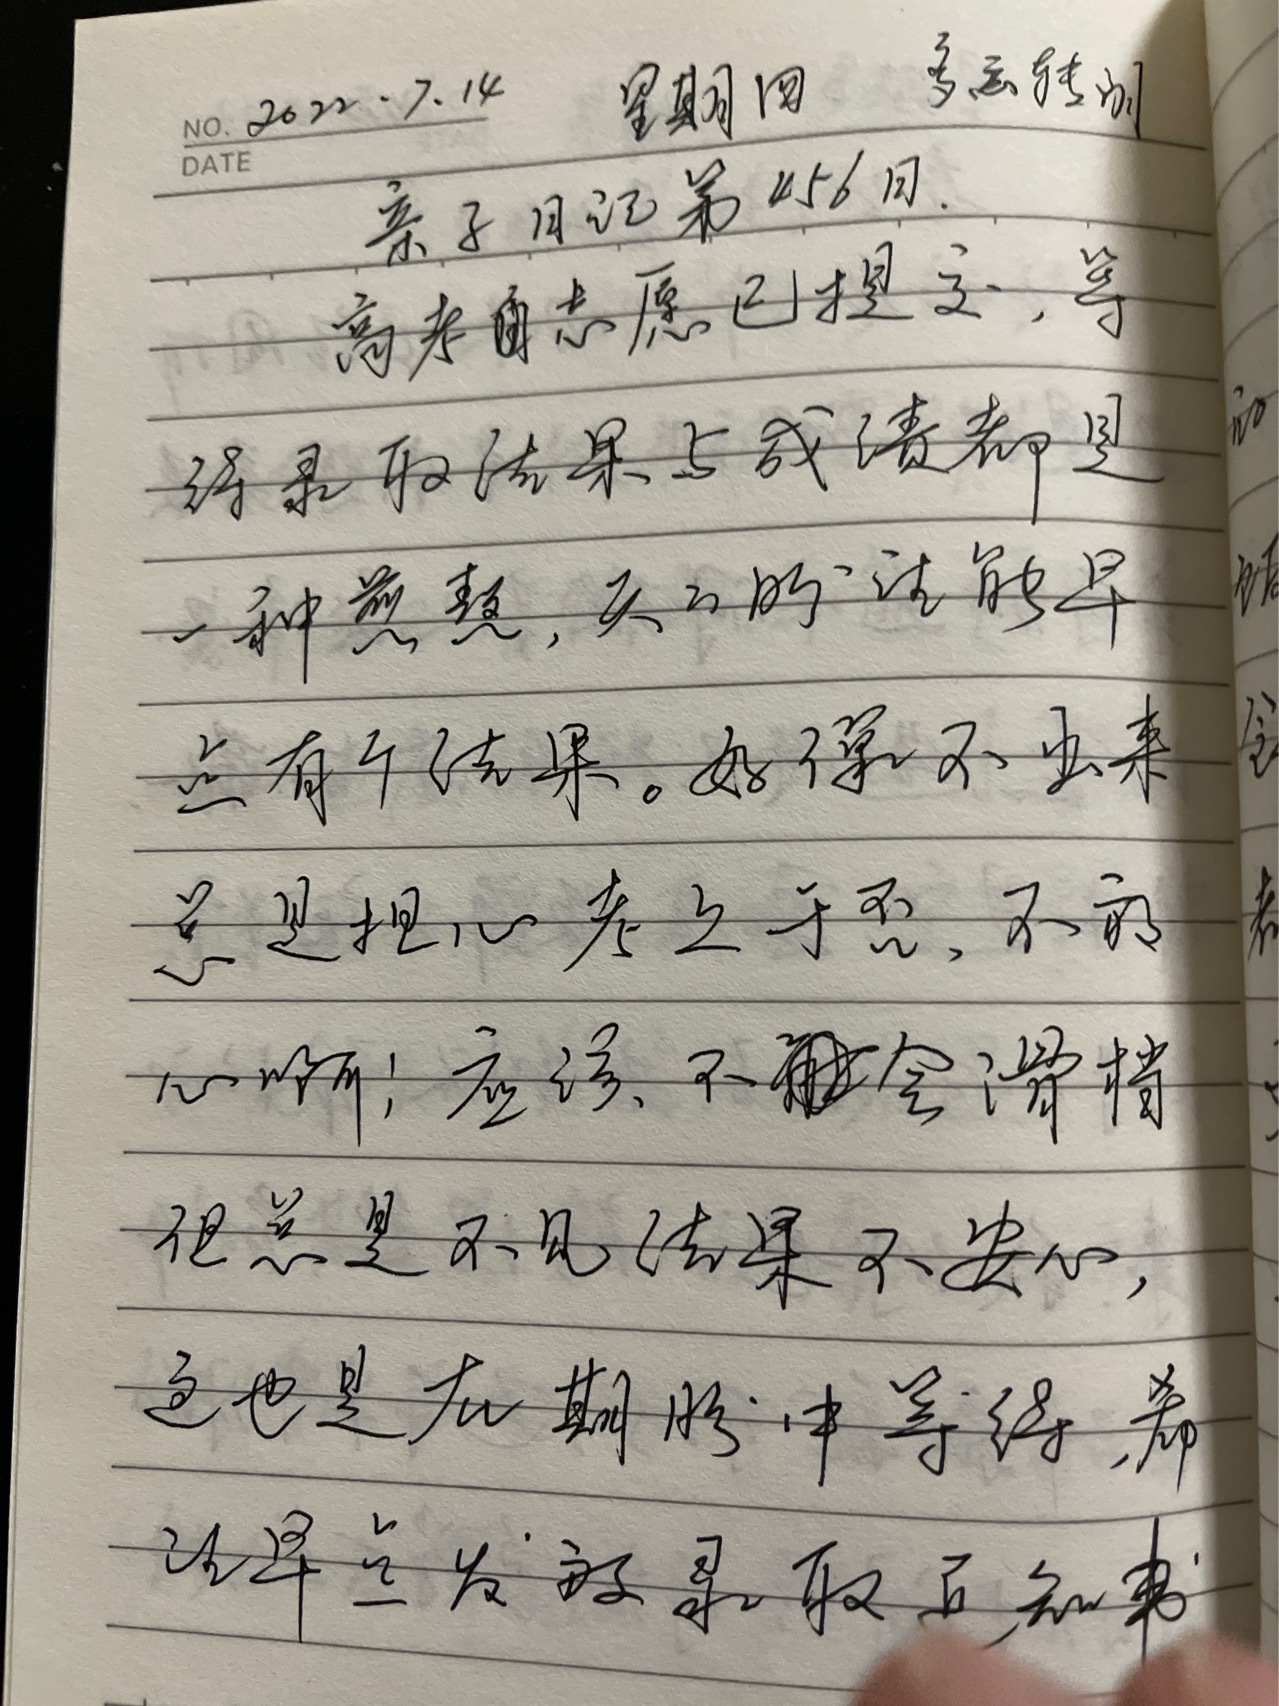 NO. 2022.7.14 星期四 多云转阴
DATE
亲子日记第456日.
高考志愿已提交，等
待录取结果与成绩都是
一种煎熬，天天盼望能早
点有个结果。如弹不出来
总是担心考上于否，不放
心啊！应该不会滑档
但总是不见结果不安心，
这也是在期盼中等待，希
望早点发放录取通知书